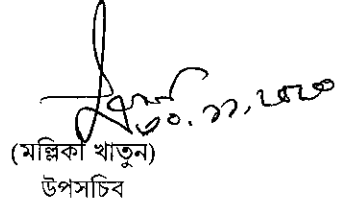 ৩০.১১.২০২০
(মল্লিকা খাতুন)
উপসচিব